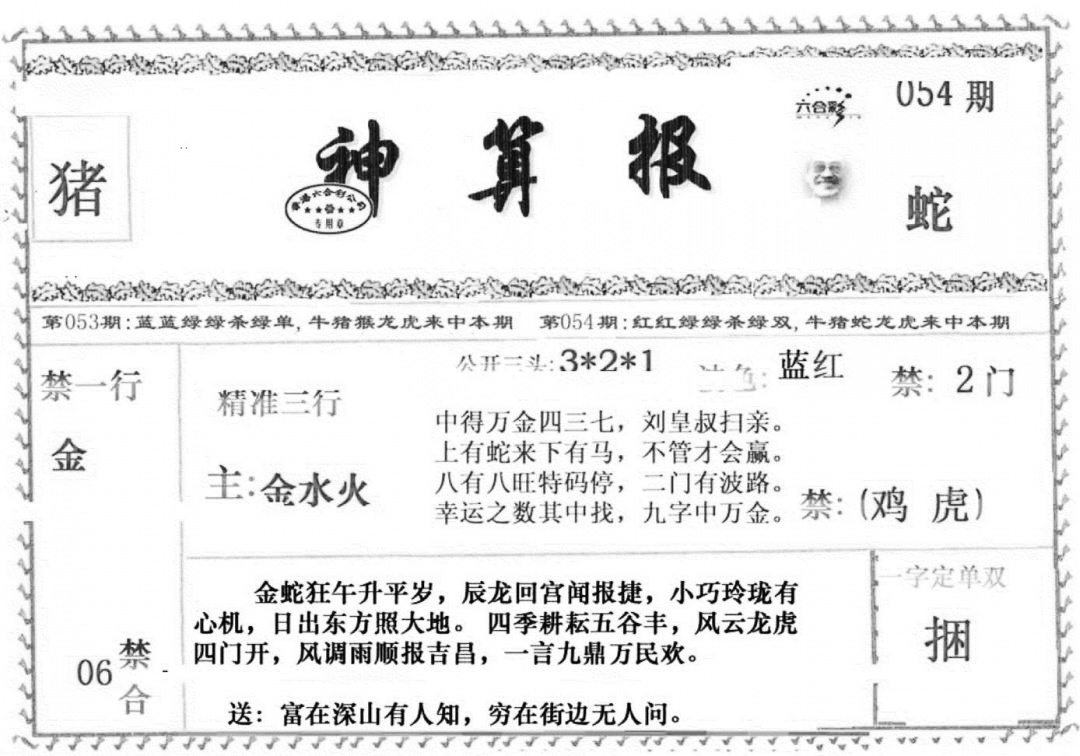 六合彩
054 期
猪
神算报
香港六合彩公司
专用章
蛇
第053期:蓝蓝绿绿杀绿单,牛猪猴龙虎来中本期 第054期:红红绿绿杀绿双,牛猪蛇龙虎来中本期
禁一行
金
精准三行
主:金水火
公开三头:3*2*1
色: 蓝红
禁: 2门
中得万金四三七，刘皇叔扫亲。
上有蛇来下有马，不管才会赢。
八有八旺特码停，二门有波路。
幸运之数其中找，九字中万金。
禁:(鸡 虎)
06 禁合
金蛇狂午升平岁，辰龙回宫闻报捷，小巧玲珑有
心机，日出东方照大地。 四季耕耘五谷丰，风云龙虎
四门开，风调雨顺报吉昌，一言九鼎万民欢。
送：富在深山有人知，穷在街边无人问。
一字定单双
捆